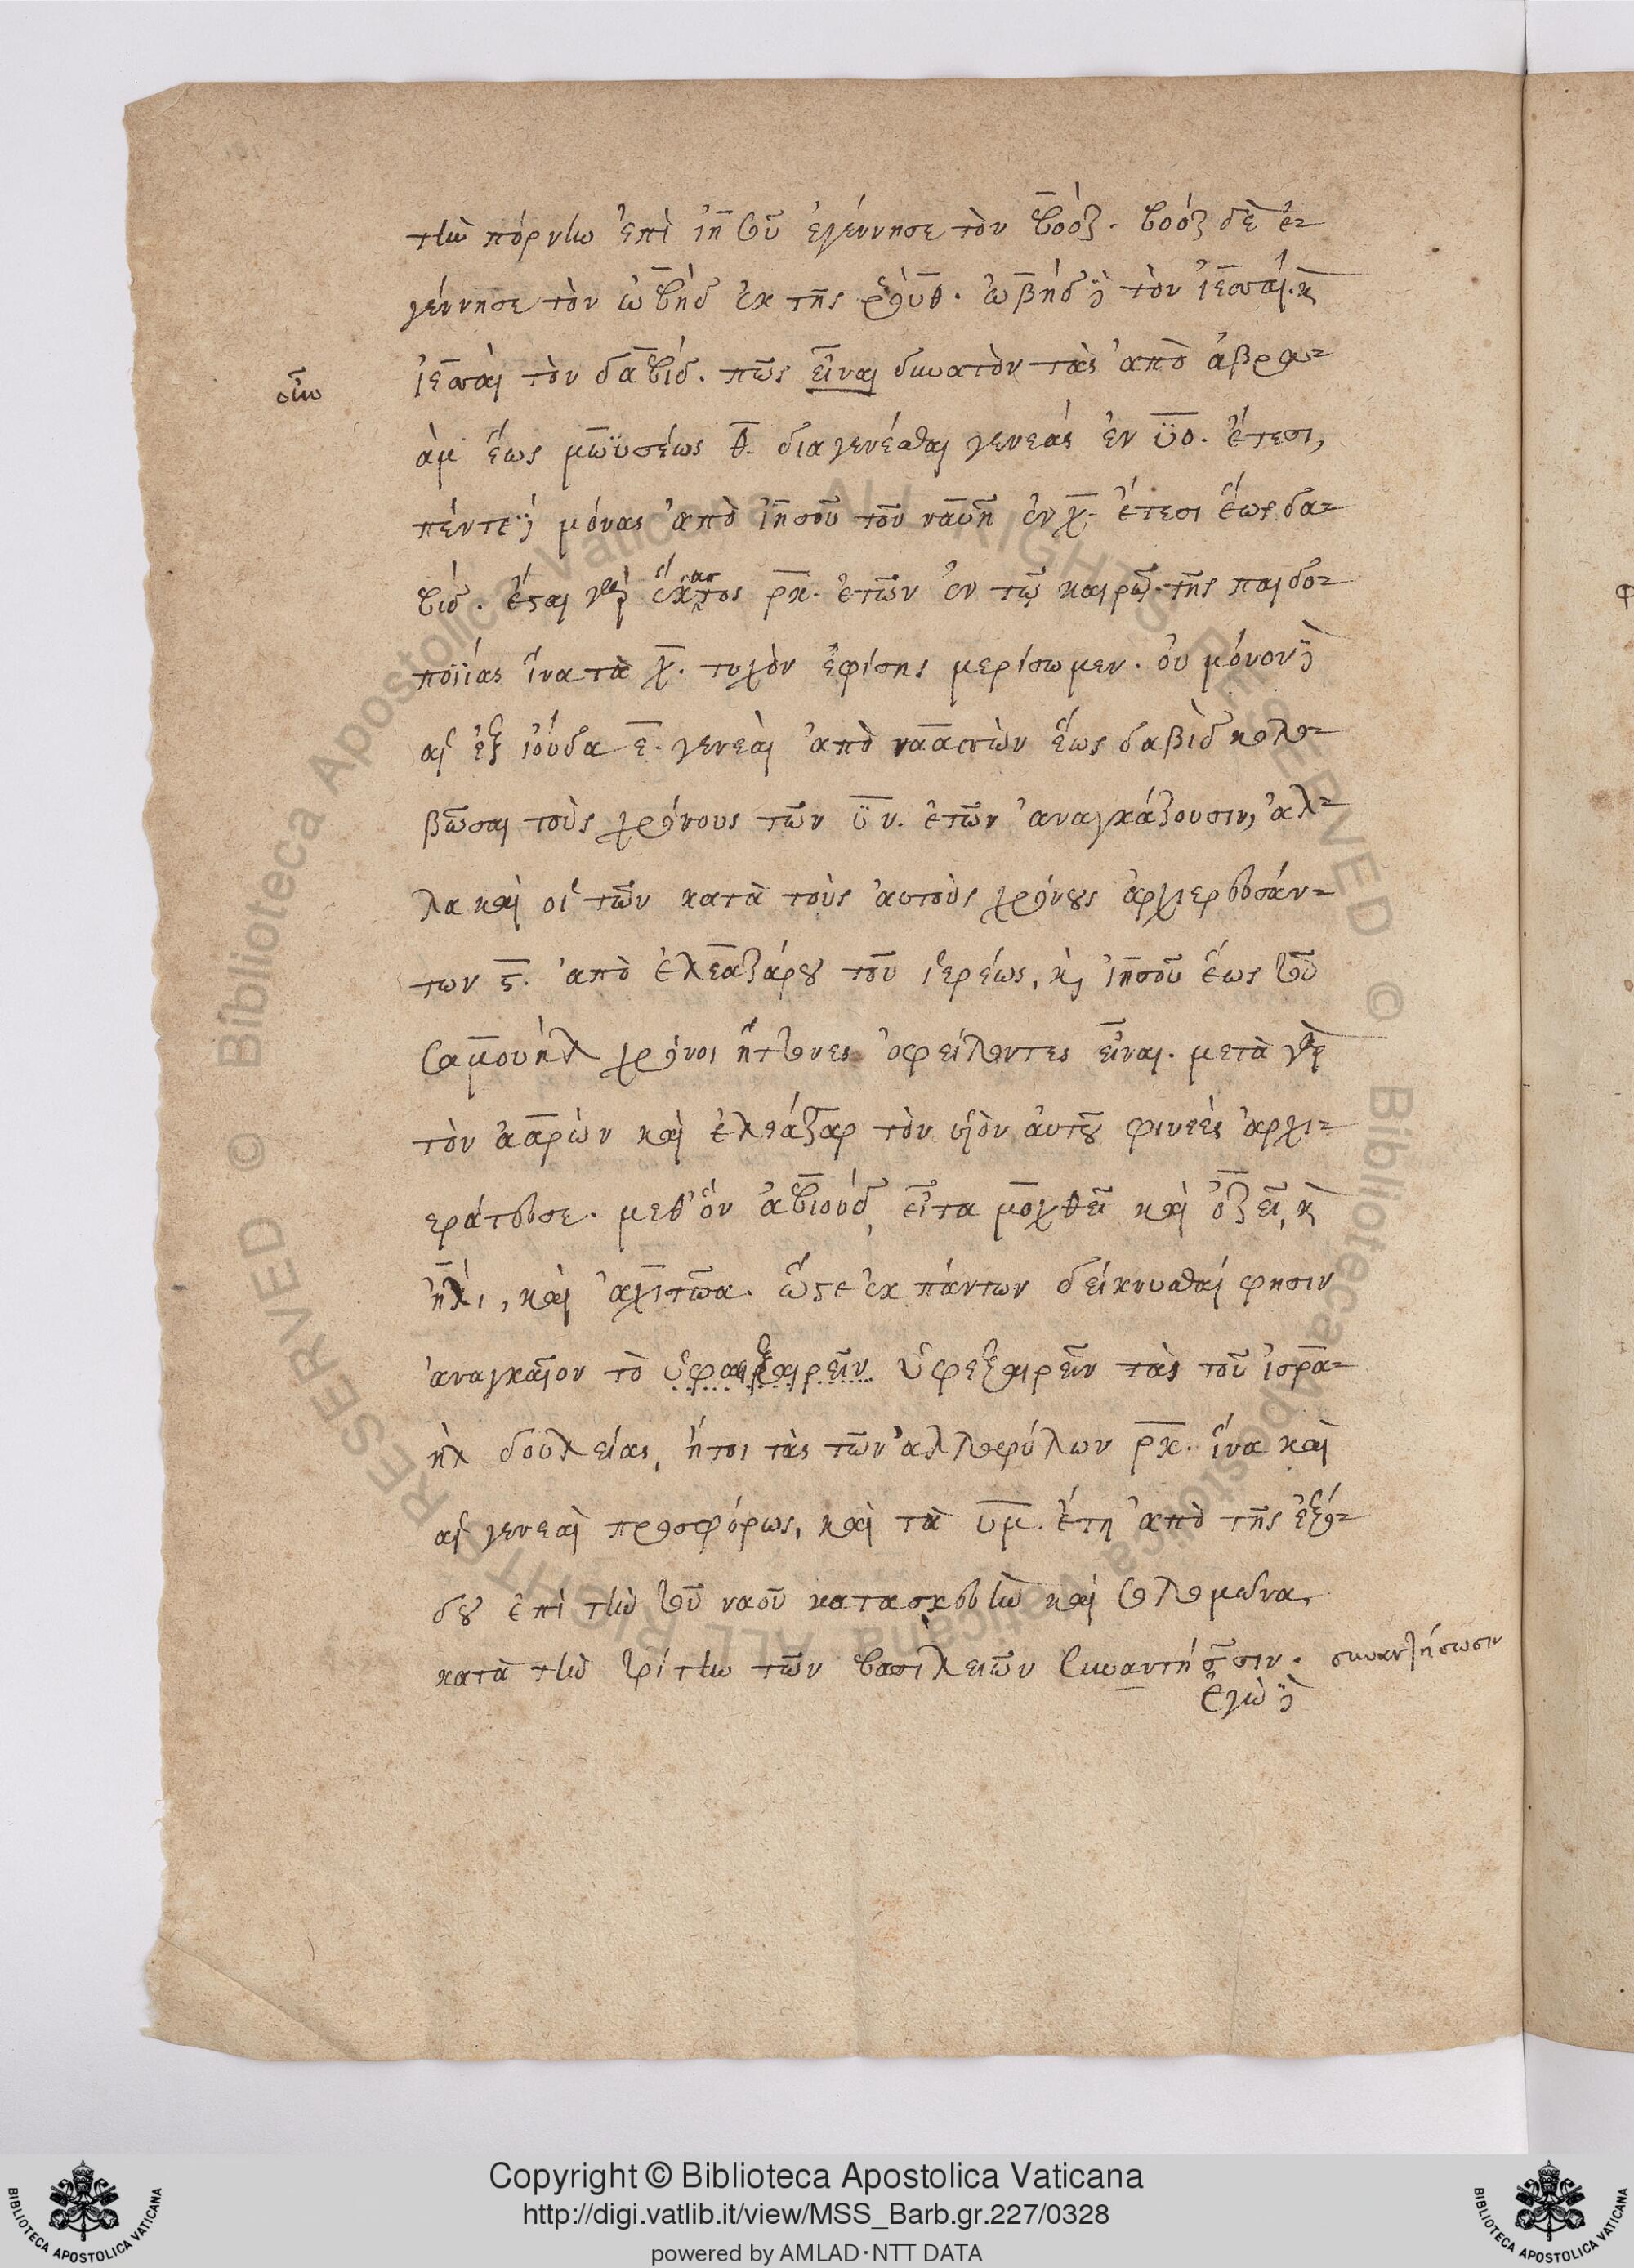 τὴν πόρνην ἐπὶ ἰη̄ τοῦ ἐγέννησε τὸν βοόζ. βοόζ δὲ ἐ-
γέννησε τὸν ὠβὴδ ἐκ τῆς ῥούθ. ὠβὴδ δὲ τὸν ἰεσσαί. κὶ
ἰεσσαὶ τὸν δαβίδ. πῶς εἶναι δυνατὸν τὰς ἀπὸ ἀβρα-
οἶν
ὰμ ἕως μωϋσέως θ̄. διαγενέσθαι γενεάς ἐν ῡο̄. ἔτεσι,
πέντε δὲ μόνας ἀπὸ ἰησοῦ τοῦ ναυῆ ἐν χ̄. ἔτεσι ἕως δα-
βίδ. ἔσται γὰρ ἕκαστος ρ̄κ̄. ἐτῶν ἐν τῷ καιρῷ τῆς παιδο-
ποιΐας ἵνα τὰ χ̄. τυχὸν ἐφίσης μερίσωμεν. οὐ μόνον δὲ
αἱ ἐξ ἰούδα ε̄. γενεαὶ ἀπὸ ναασσὼν ἕως δαβὶδ κολο-
βῶσαι τοὺς χρόνους τῶν ῡν̄. ἐτῶν ἀναγκάζουσιν, ἀλ-
λα καὶ οἱ τῶν κατὰ τοὺς αὐτοὺς χρόνους ἀρχιερευσάν-
των ϛ̄. ἀπὸ ἐλεαζάρου τοῦ ἱερέως, κὶ ἰησοῦ ἕως τοῦ
σαμουὴλ χρόνοι ἥττονες ὀφείλοντες εἶναι. μετὰ γὰρ
τὸν ἀαρὼν καὶ ἐλεάζαρ τὸν υἱὸν αὐτοῦ φινεὲς ἀρχι-
εράτευσε. μεθ' ὃν ἀβιούδ, εἶτα μοχθεῖ καὶ ὀζεῖ, κὶ
ἠλὶ, καὶ ἀχιτῶα. ὥστε ἐκ πάντων δείκνυσθαί φησιν
ἀναγκαῖον τὸ ὑφαιξαιρεῖν ὑφεξαιρεῖν τὰς τοῦ ἰσρα-
ὴλ δουλείας, ἤτοι τὰς τῶν ἀλλοφύλων ρ̄κ̄. ἵνα καὶ
αἱ γενεαὶ προσφόρως, καὶ τὰ ῡμ̄. ἔτη ἀπὸ τῆς ἐξό-
δου ἐπὶ τὴν τοῦ ναοῦ κατασκευὴν καὶ σολομῶνα,
κατὰ τὴν τρίτην τῶν βασιλειῶν συναντήσωσιν. συναντήσωσιν
ἐγὼ δὲ
Copyright © Biblioteca Apostolica Vaticana
http://digi.vatlib.it/view/MSS_Barb.gr.227/0328
powered by AMLAD·NTT DATA